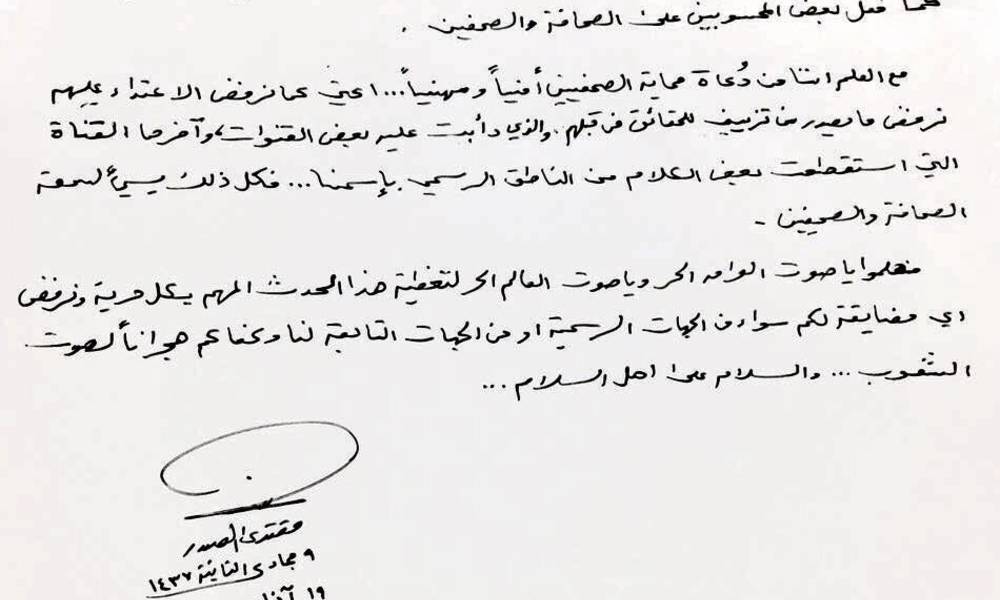 كما فعل بعض المحسوبين على الصحافة والصحفيين .
مع العلم اننا من دُعاة حماية الصحفيين أمنياً ومهنياً... اعني كما نرفض الاعتداء عليهم
نرفض ما يصدر من تزييف للحقائق من قبلهم. والذي دأبت عليه بعض القنوات، وآخرها القناة
التي استقطعت بعض الكلام من الناطق الرسمي بإسمنا... فكل ذلك يسيءُ لسمعة
الصحافة والصحفيين -
فهلموا يا صوت العراق الحر ويا صوت العالم الحر لتغطية هذا الحدث المهم بكل حرية ونرفض
اي مضايقة لكم سواء من الجهات الرسمية او من الجهات التابعة لنا وكفاكم هجراناً لصوت
الشعوب ... والسلام على اهل السلام ...
مقتدى الصدر
٩ جمادى الثانية ١٤٣٧
١٩ آذار